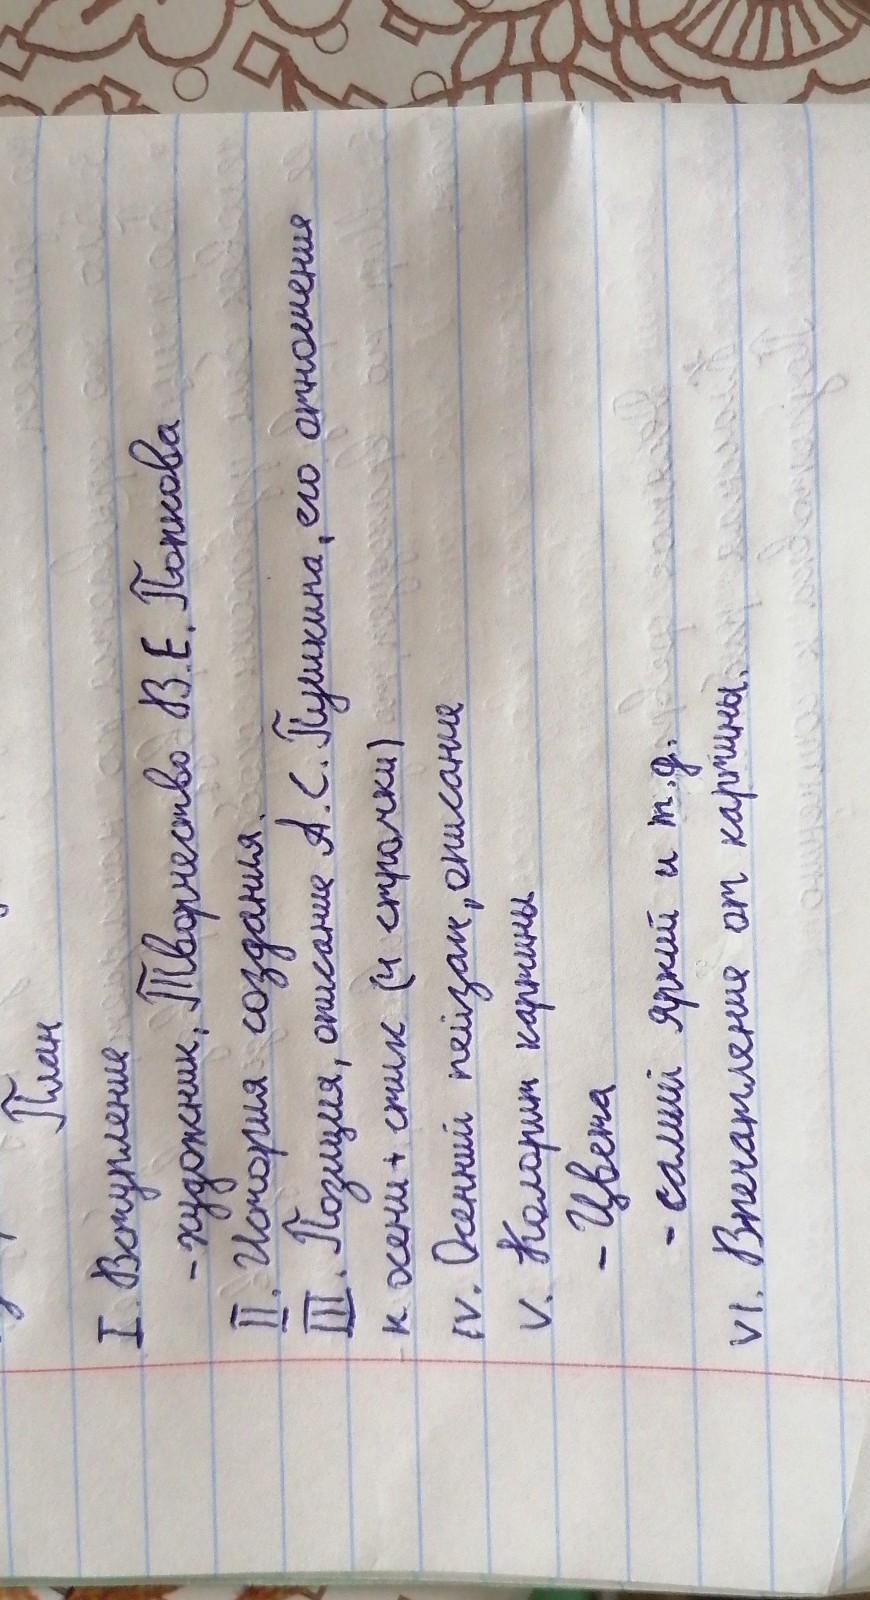 План
I. Вступление
- художник, Творчество В.Е. Попкова
II. История создания.
III. Позиция, описание А.С. Пушкина, его отношение
к осени + стих (4 строчки)
IV. Осенний пейзаж, описание
V. Колорит картины
- Цвета
- самый яркий и т.д.
VI. Впечатление от картины.